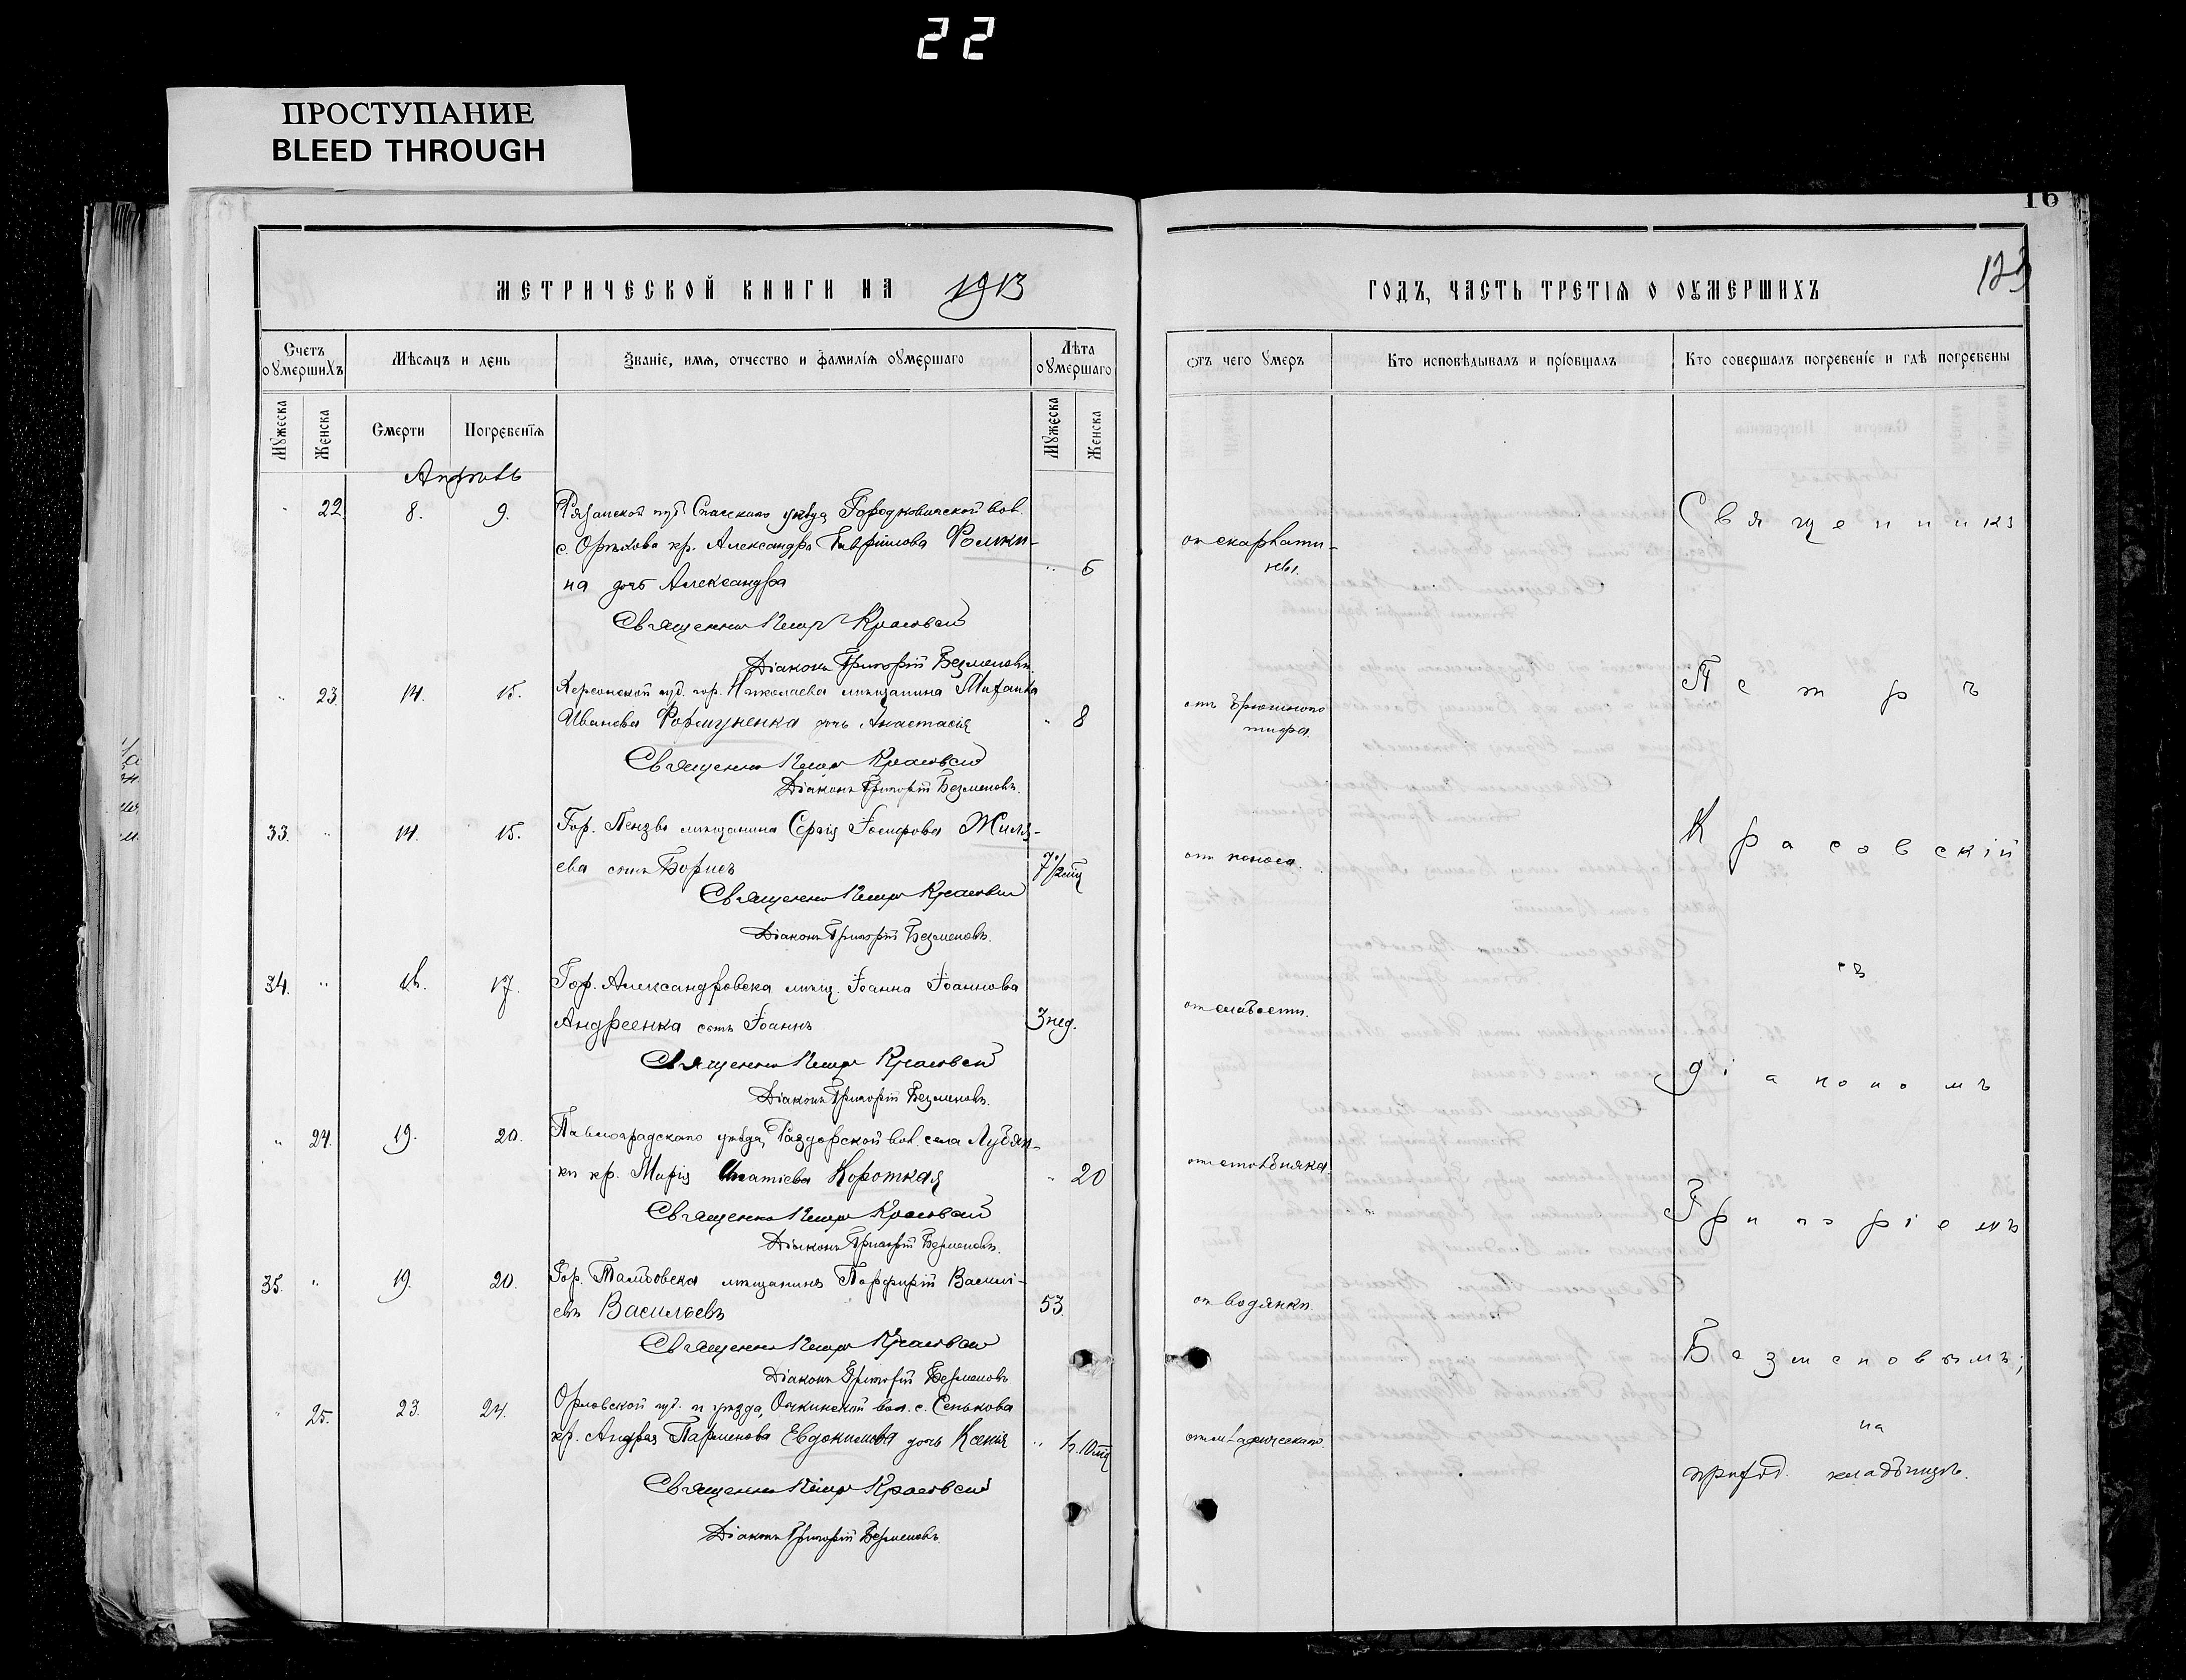 22
ПРОСТУПАНИЕ
BLEED THROUGH
16
МЕТРИЧЕСКОЙ КНИГИ НА 1913
ГОДЪ, ЧАСТЬ ТРЕТІЯ О ОУМЕРШИХЪ
123
Счетъ оумершихъ
Мѣсяцъ и день
Званіе, имя, отчество и фамилія оумершаго
Лѣта оумершаго
отъ чего умеръ
Кто исповѣдывалъ и пріобщалъ
Кто совершалъ погребеніе и гдѣ погребены
Мужеска
Женска
Смерти
Погребенія
Мужеска
Женска
Апрѣль
" 22. 8. 9. Рязанской губ. Спасскаго уѣзда Городковической вол.
с. Орѣхова кр. Александра Гавріилова Фомки-
на дочь Александра " 6
от скарлати-
ны.
Священникъ Петръ Красовскій
Діаконъ Григорій Безменовъ.
" 23. 14. 15. Херсонской губ. гор. Николаева мѣщанина Михаила
Иванова дочь Анастасія " 8
отъ брюшного
тифа.
Священникъ Петръ Красовскій
Діаконъ Григорій Безменовъ.
33. " 14. 15. Гор. Пензы мѣщанина Сергія Іосифова Жиля-
ева сынъ Борисъ 7 1/2 мѣц
отъ поноса.
Священникъ Петръ Красовскій
Діаконъ Григорій Безменовъ.
34. " 16. 17. Гор. Александровска мѣщ. Іоанна Іоаннова
Андреенка сынъ Іоаннъ 3 нед.
от слабости.
Священникъ Петръ Красовскій
Діаконъ Григорій Безменовъ.
" 24. 19. 20. Павлоградскаго уѣзда, Раздорской вол. села Лубян-
ки кр. Марія Игнатіева Короткая " 20
от столбняка.
Священникъ Петръ Красовскій
Діаконъ Григорій Безменовъ.
35. " 19. 20. Гор. мѣщанинъ Порфирій Василі-
евъ Васильевъ 53.
от водянки.
Священникъ Петръ Красовскій
Діаконъ Григорій Безменовъ
" 25. 23. 24. Орловской губ. и уѣзда, вол. с. Сенькова
кр. Андрея Парменова Евдокимова дочь Ксенія "
Священникъ Петръ Красовскій
Діаконъ Григорій Безменовъ.
Священникъ
Петръ
Красовскій
съ
діакономъ
Григоріемъ
Безменовымъ;
на
приход. кладбищѣ.